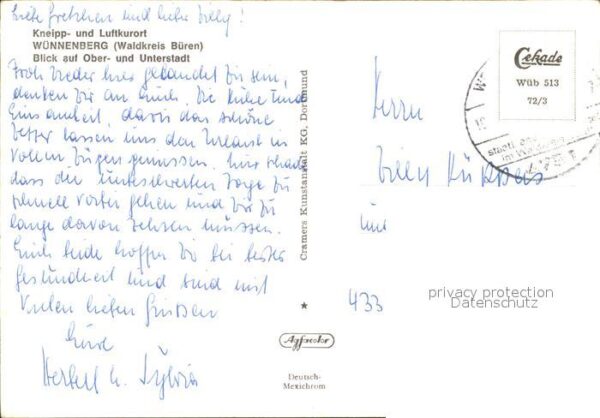 Liebe Gretchen und lieber Willy!
Kneipp- und Luftkurort
WÜNNENBERG (Waldkreis Büren)
Blick auf Ober- und Unterstadt
Froh wieder hier gelandet zu sein,
denken wir an Euch. Die Ruhe und
Einsamkeit, dazu das schöne
Wetter lassen uns den Urlaub in
vollen Zügen genießen. Nur schade
dass die Tage zu
schnell vorbei gehen und wir zu
lange davon zehren müssen.
Euch beide hoffen wir bei bester
Gesundheit und sind mit
vielen lieben Grüßen
Eure
Herbert u. Sylvia
Cramers Kunstanstalt KG, Dortmund
Agfacolor
Deutsch-
Mexichrom
Cekade
Wüb 513
72/3
staatl.
Herrn
Willy
433
privacy protection
Datenschutz